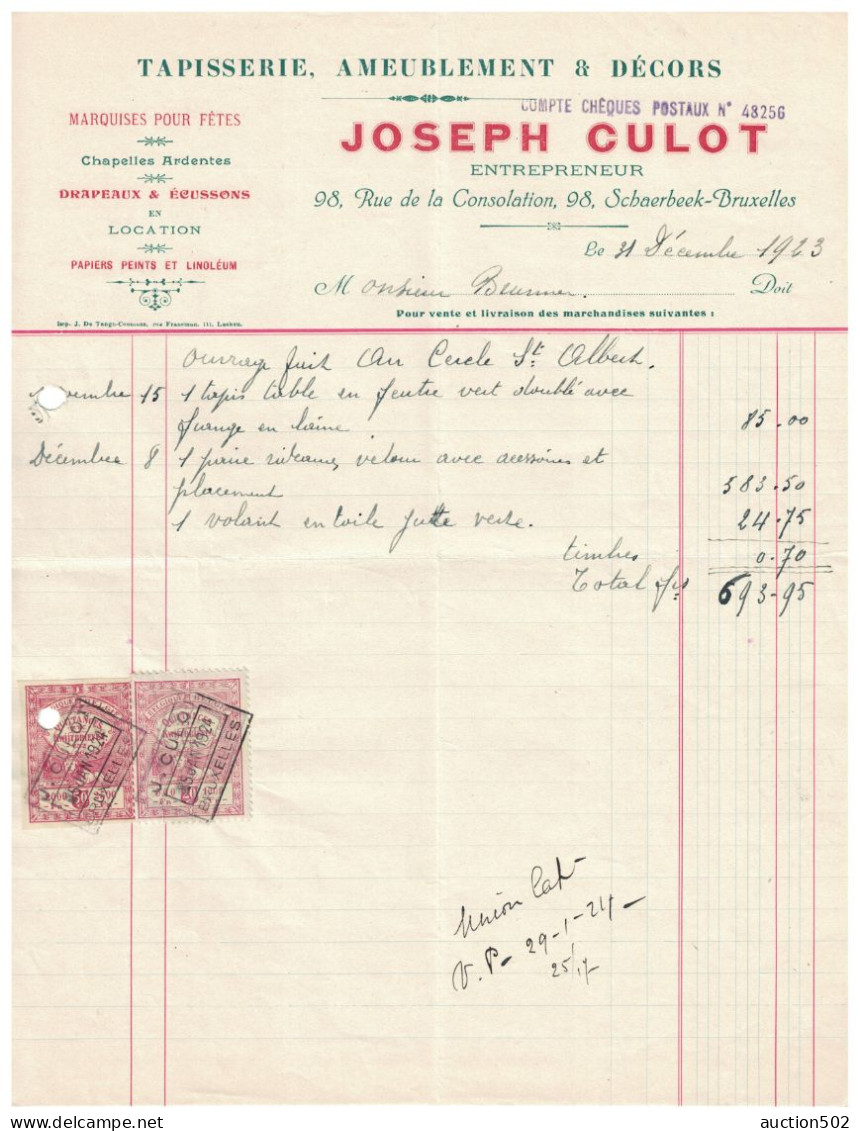 TAPISSERIE, AMEUBLEMENT & DÉCORS
COMPTE CHÈQUES POSTAUX N° 48256
MARQUISES POUR FÊTES
Chapelles Ardentes
DRAPEAUX & ÉCUSSONS
EN
LOCATION
PAPIERS PEINTS ET LINOLÉUM
JOSEPH CULOT
ENTREPRENEUR
98, Rue de la Consolation, 98, Schaerbeek-Bruxelles
Le 31 Décembre 1923
Monsieur Brunner. Doit
Pour vente et livraison des marchandises suivantes :
Imp. J. De Tange-Crossens, rue Fransman, 111, Laeken.
Ouvrage fait Au Cercle St. Albert.
15 1 tapis table en feutre vert doublé avec
frange en laine 85.00
Décembre 8 1 paire rideaux, velour avec acessoires et
placement 583.50
1 volant en toile jutte verte. 24.75
timbres 0.70
Total frs 693-95
J. CULOT
25 JAN 1924
BRUXELLES
J. CULOT
25 JAN 1924
BRUXELLES
20
20
Union
V. P- 29-1-24-
auction502